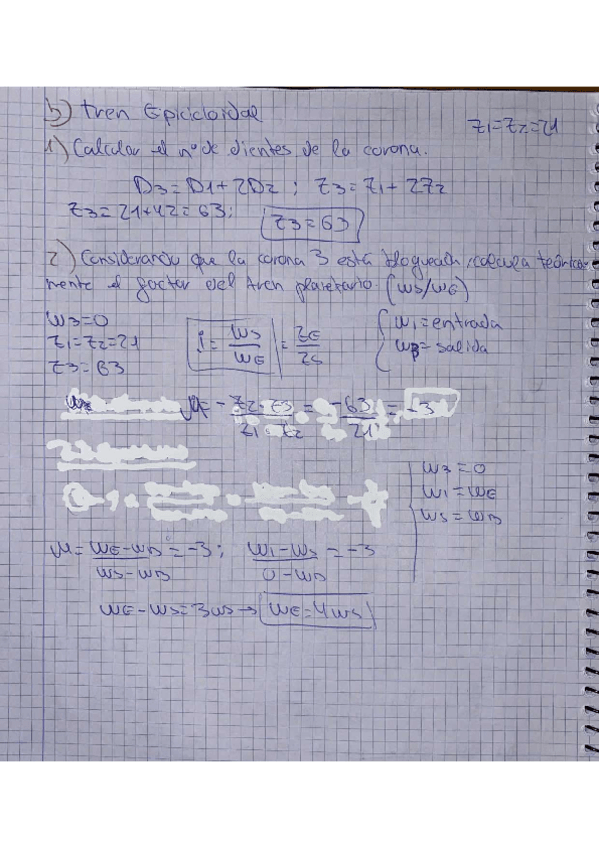 b) tren Epicicloidal
Z1=Z2=21
1) Calcular el nº de dientes de la corona.
D3=D1+2D2 ; Z3=Z1+2Z2
Z3=21+42=63; Z3=63
2) Considerando que la corona 3 está bloqueada, calcula teórica-
mente el factor del tren planetario. (ws/wE)
w3=0
Z1=Z2=21
Z3=63
i = ws/wE = ZE/ZS
w1=entrada
wB=salida
μ= -Z2·Z3/Z1·Z2 = -63/21 = -3
w3=0
w1=wE
ws=wB
μ= wE-wB/ws-wB = -3; w1-ws/0-wB = -3
wE-ws=3ws → wE=4ws